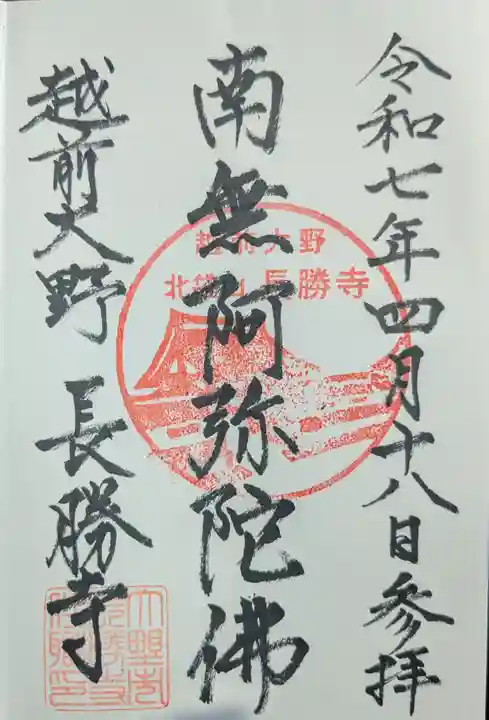 令和七年四月十八日参拝
南無阿弥陀佛
越前大野 長勝寺
越前大野
長勝寺